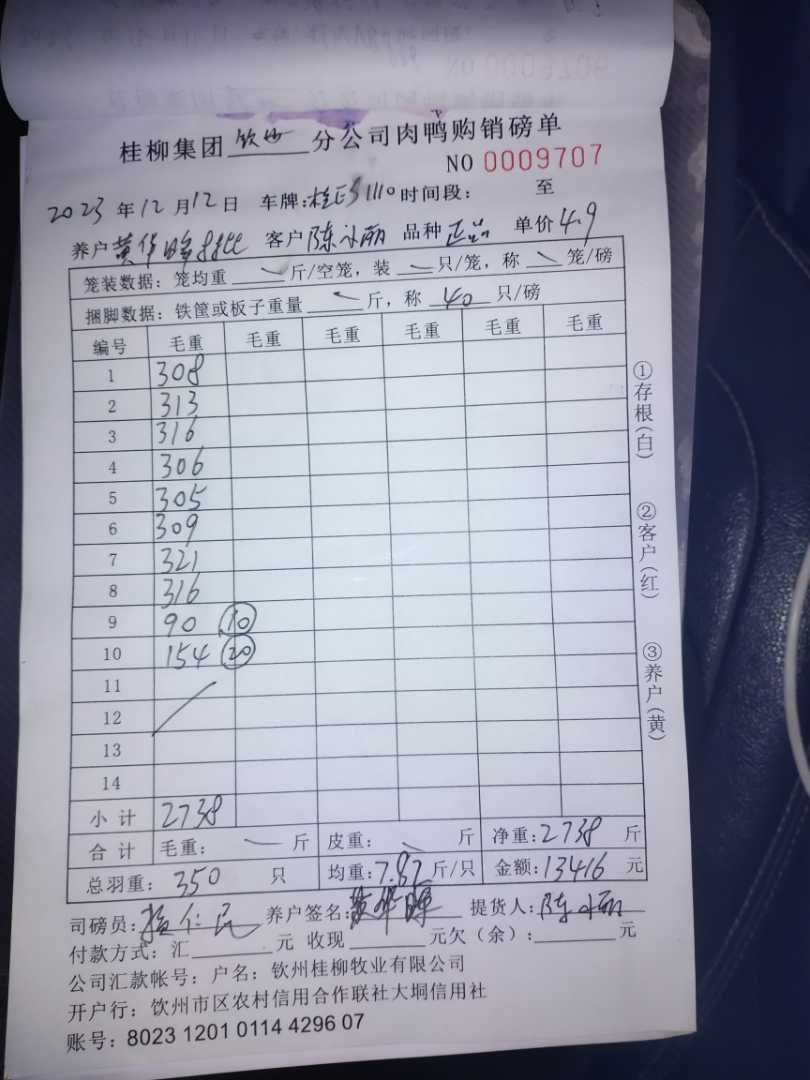 桂柳集团 钦州 分公司肉鸭购销磅单
NO 0009707
2023 年 12 月 12 日 车牌: 1110 时间段: 至
养户 黄华晖 客户 陈 丽 品种 正品 单价 4.9
笼装数据: 笼均重 斤/空笼, 装 只/笼, 称 笼/磅
捆脚数据: 铁筐或板子重量 斤, 称 40 只/磅
编号 毛重 毛重 毛重 毛重 毛重 毛重
1 308
2 313
3 316
4 306
5 305
6 309
7 321
8 316
9 90 10
10 154 20
11
12
13
14
小计 2738
合计 毛重: 斤 皮重: 斤 净重: 2738 斤
总羽重: 350 只 均重: 7.82 斤/只 金额: 13416 元
司磅员: 仁 养户签名: 黄华晖 提货人: 陈 丽
付款方式: 汇 元 收现 元欠(余): 元
公司汇款帐号: 户名: 钦州桂柳牧业有限公司
开户行: 钦州市区农村信用合作联社大垌信用社
账号: 8023 1201 0114 4296 07
①存根(白)
②客户(红)
③养户(黄)